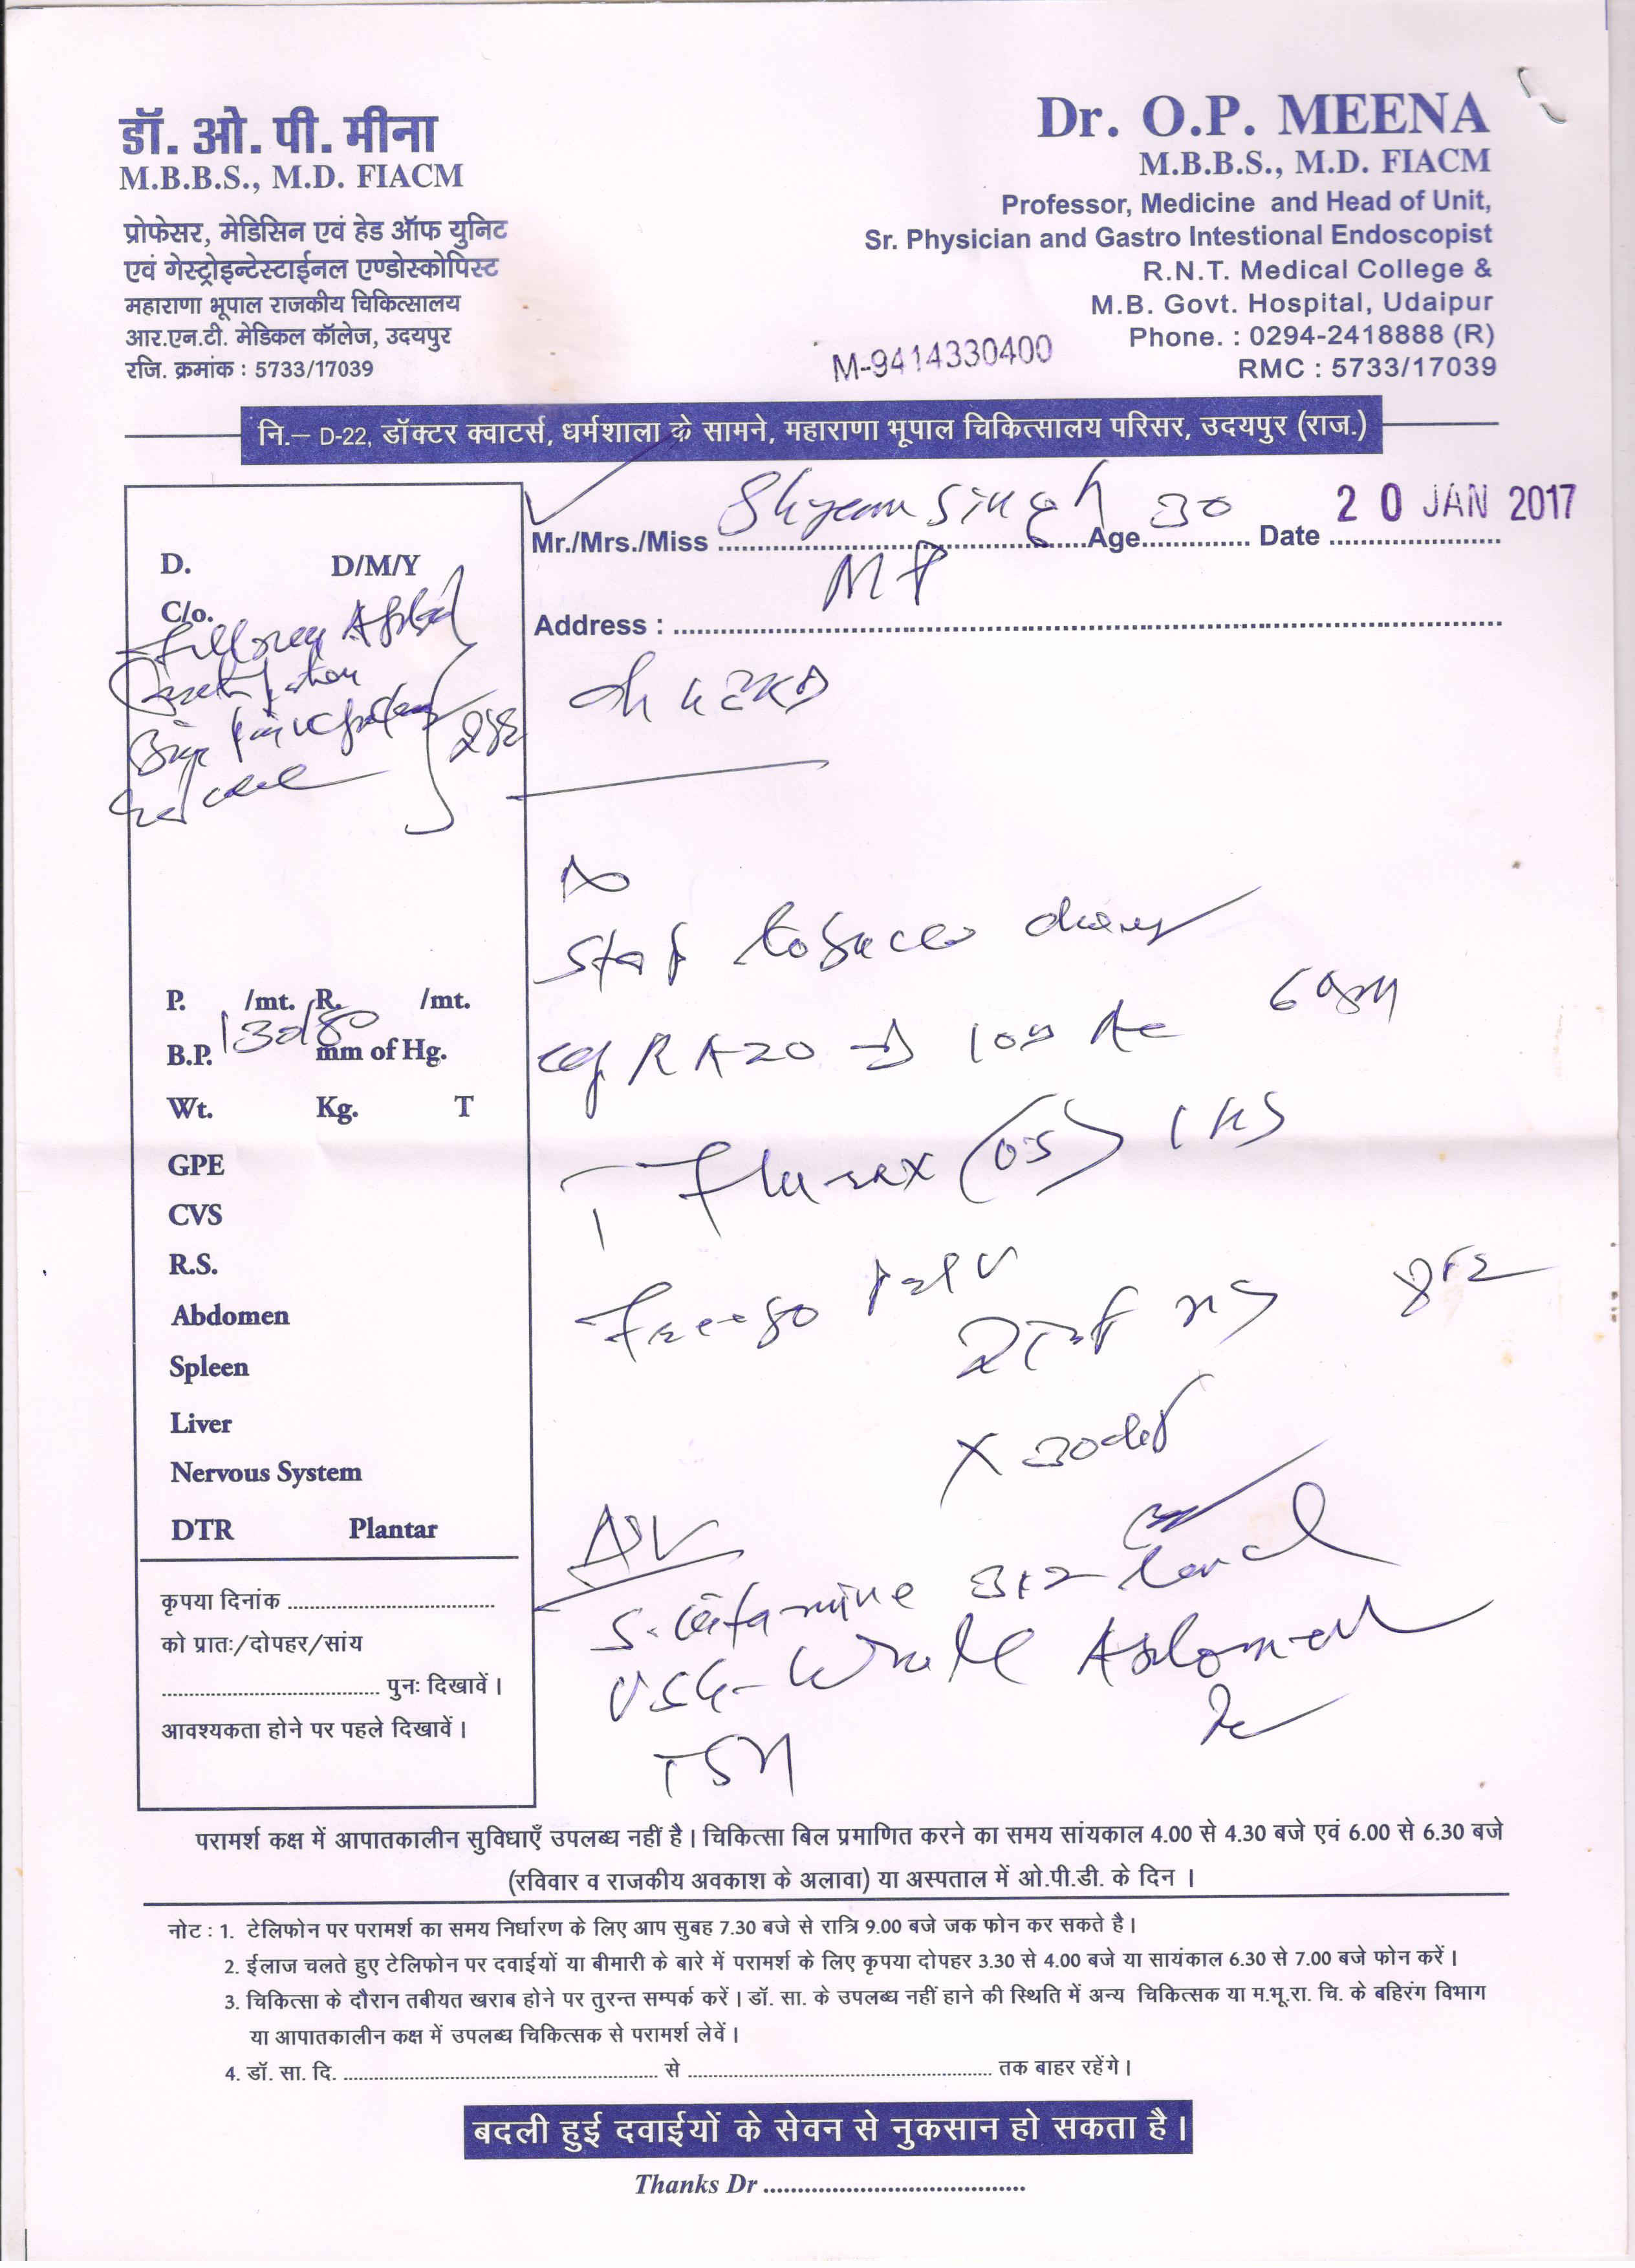 डॉ. ओ. पी. मीना
M.B.B.S., M.D. FIACM
प्रोफेसर, मेडिसिन एवं हेड ऑफ युनिट
एवं गेस्ट्रोइन्टेस्टाईनल एण्डोस्कोपिस्ट
महाराणा भूपाल राजकीय चिकित्सालय
आर.एन.टी. मेडिकल कॉलेज, उदयपुर
रजि. क्रमांक : 5733/17039
Dr. O.P. MEENA
M.B.B.S., M.D. FIACM
Professor, Medicine and Head of Unit,
Sr. Physician and Gastro Intestional Endoscopist
R.N.T. Medical College &
M.B. Govt. Hospital, Udaipur
Phone. : 0294-2418888 (R)
RMC : 5733/17039
M-9414330400
नि.– D-22, डॉक्टर क्वाटर्स, धर्मशाला के सामने, महाराणा भूपाल चिकित्सालय परिसर, उदयपुर (राज.)
Mr./Mrs./Miss Shyam Singh Age 30 Date 20 JAN 2017
Address : MP
D. D/M/Y
C/o.
P. /mt. R. /mt.
B.P. 130/80 mm of Hg.
Wt. Kg. T
GPE
CVS
R.S.
Abdomen
Spleen
Liver
Nervous System
DTR Plantar
कृपया दिनांक
को प्रातः/दोपहर/सांय
पुनः दिखावें।
आवश्यकता होने पर पहले दिखावें।
Stop tobacco
RA20
(0.5) 1 HS
ADV
S. Vitamine B12 level
USG- Whole Abdomen
TSH
परामर्श कक्ष में आपातकालीन सुविधाएँ उपलब्ध नहीं है। चिकित्सा बिल प्रमाणित करने का समय सांयकाल 4.00 से 4.30 बजे एवं 6.00 से 6.30 बजे
(रविवार व राजकीय अवकाश के अलावा) या अस्पताल में ओ.पी.डी. के दिन ।
नोट : 1. टेलिफोन पर परामर्श का समय निर्धारण के लिए आप सुबह 7.30 बजे से रात्रि 9.00 बजे जक फोन कर सकते है।
2. ईलाज चलते हुए टेलिफोन पर दवाईयों या बीमारी के बारे में परामर्श के लिए कृपया दोपहर 3.30 से 4.00 बजे या सायंकाल 6.30 से 7.00 बजे फोन करें।
3. चिकित्सा के दौरान तबीयत खराब होने पर तुरन्त सम्पर्क करें। डॉ. सा. के उपलब्ध नहीं हाने की स्थिति में अन्य चिकित्सक या म.भू.रा. चि. के बहिरंग विभाग
या आपातकालीन कक्ष में उपलब्ध चिकित्सक से परामर्श लेवें।
4. डॉ. सा. दि. से तक बाहर रहेंगे।
बदली हुई दवाईयों के सेवन से नुकसान हो सकता है।
Thanks Dr